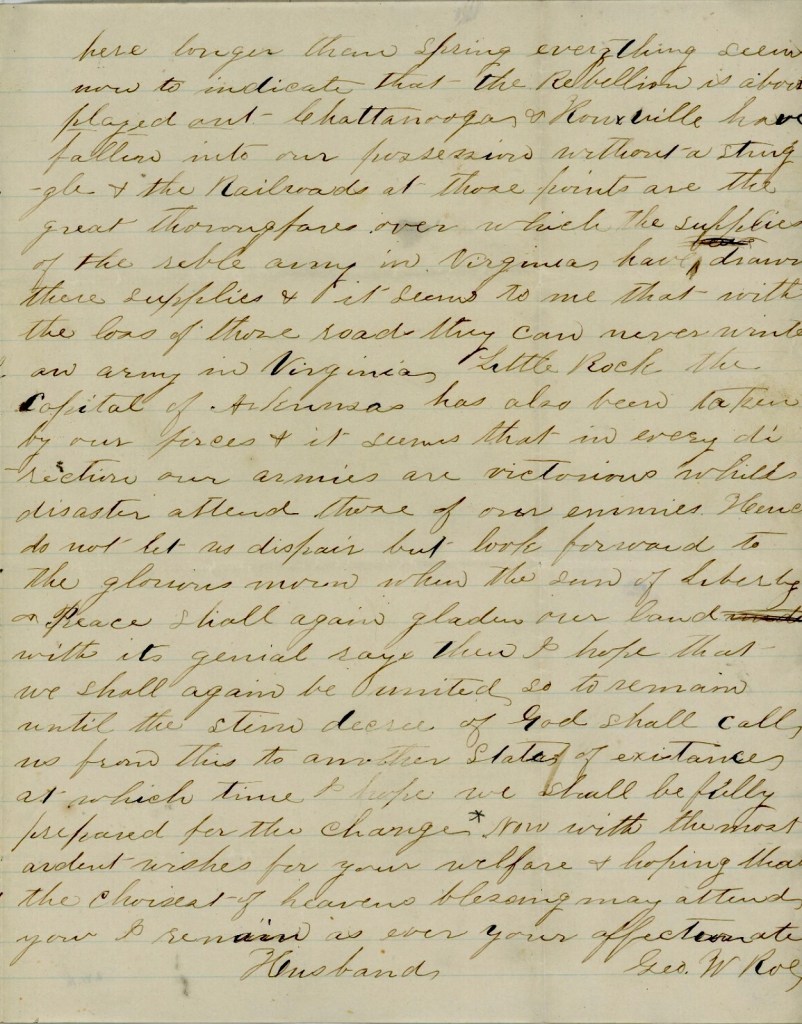 here longer than Spring everything seem
now to indicate that the Rebellion is about
played out Chattanooga & Knoxville have
fallen into our possession without a strug
-gle & the Railroads at those points are the
great thoroughfares over which the supplies
of the reble army in Virginia have been drawn
there supplies & it seems to me that with
the loss of those roads they can never winter
an army in Virginia Little Rock the
Capital of Arkansas has also been taken
by our forces & it seems that in every di
-rection our armies are victorious whills
disaster attend those of our enmies. Henc
do not let us dispair but look forward to
the glorious morn when the sun of Liberty
& Peace shall again gladen our land
with its genial rays then I hope that
we shall again be united so to remain
until the stern decree of God shall call
us from this to another State of existance
at which time I hope we shall be fully
prepared for the change * Now with the most
ardent wishes for your welfare & hoping that
the choisest of heavens blessing may attend
you I remain as ever your affectionate
Husband Geo. W Roe